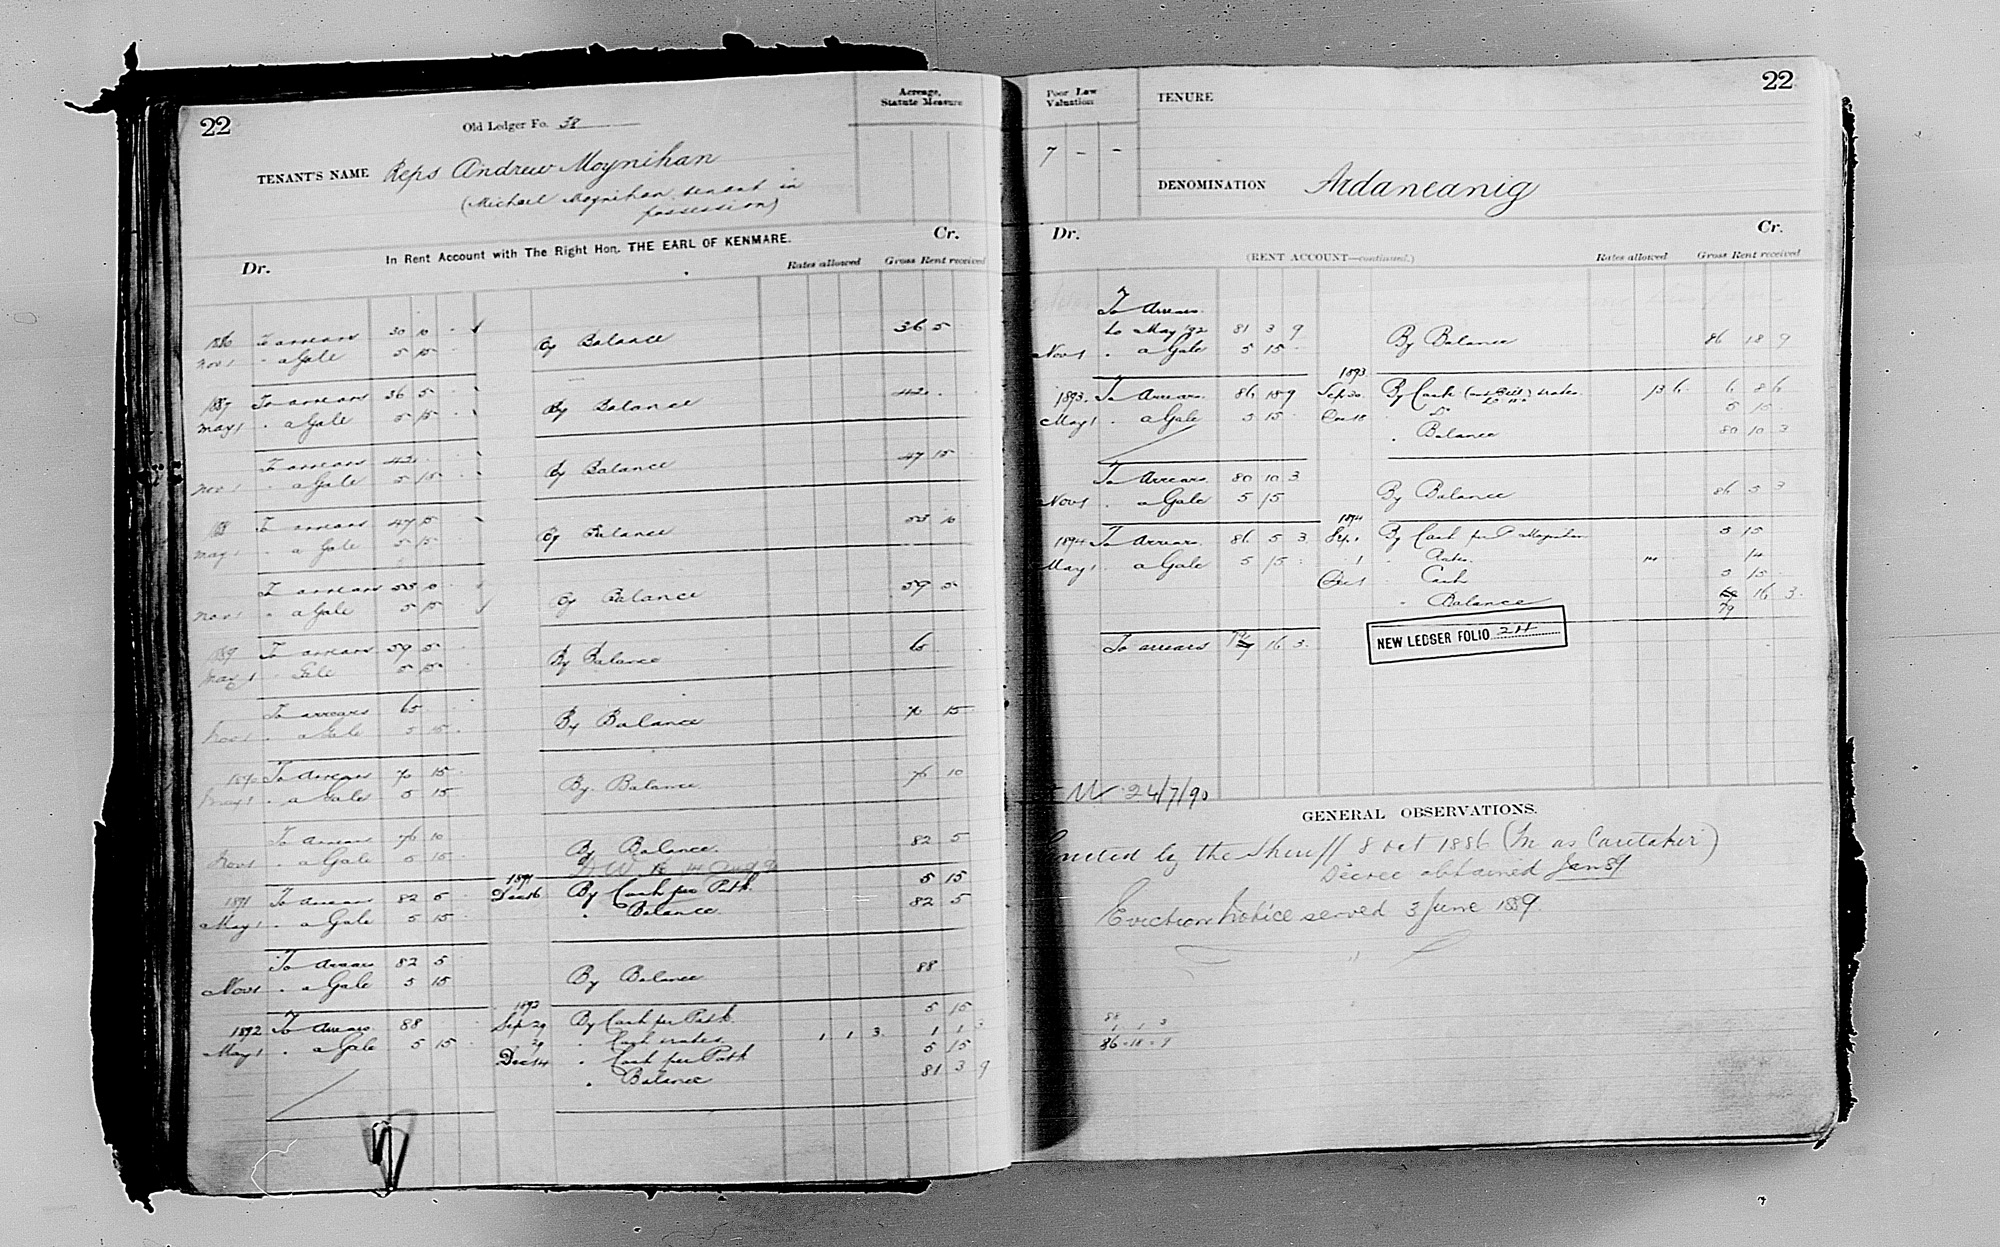 22
Old Ledger Fo. 38
Acreage, Statute Measure
TENANT'S NAME Reps Andrew Moynihan
(Michael Moynihan tenant in
possession)
In Rent Account with The Right Hon. THE EARL OF KENMARE.
Dr. Cr.
Rates allowed Gross Rent received
1886 To arrears 30 10 By Balance 36 5
Nov 1 " a Gale 5 15
1887 To arrears 36 5 By Balance 42
May 1 " a Gale 5 15
To arrears 42 By Balance 47 15
Nov 1 " a Gale 5 15
88 To arrears 47 15 By Balance 53 10
May 1 " a Gale 5 15
To arrears 53 10 By Balance 59 5
Nov 1 " a Gale 5 15
1889 To arrears 59 5 By Balance 65
May 1 " Gale 5 15
To arrears 65 By Balance 70 15
Nov 1 " a Gale 5 15
1890 To Arrears 70 15 By Balance 76 10
May 1 " a Gale 5 15
To Arrears 76 10 By Balance 82 5
Nov 1 " a Gale 5 15
1891
1891 To Arrears 82 5 Dec 16 By Cash per Patk 5 15
May 1 " a Gale 5 15 " Balance 82 5
To Arrears 82 5 By Balance 88
Nov 1 " a Gale 5 15
1892
1892 To Arrears 88 Sep 29 By Cash per Patk 5 15
May 1 " a Gale 5 15 29 " Cash rates 1 1 3 1 1 3
Dec 14 " Cash per Patk 5 15
" Balance 81 3 9
22
Poor Law Valuation
TENURE
7 - -
DENOMINATION Ardaneanig
Dr. Cr.
(RENT ACCOUNT—continued.)
Rates allowed Gross Rent received
To Arrears
to May '92 81 3 9 By Balance 86 18 9
Nov 1 " a Gale 5 15
1893
1893 To Arrears 86 18 9 Sep 30 By Cash rates 13 6 6 8 6
May 1 " a Gale 5 15 Dec 18 Do 5 15
" Balance 80 10 3
To Arrears 80 10 3 By Balance 86 5 3
Nov 1 " a Gale 5 15
1894
1894 To Arrears 86 5 3 Sep 1 By Cash per P Moynihan 5 15
May 1 " a Gale 5 15 1 " Rates 14 14
Dec 1 " Cash 5 15
" Balance 79 16 3
NEW LEDGER FOLIO 24
To arrears 79 16 3
24/7/90
GENERAL OBSERVATIONS.
by the Sheriff 8 Oct 1886 (In as Caretaker)
Decree obtained Jan 89
Eviction Notice served 3 June 1889
88
1 1 3
86-18-9